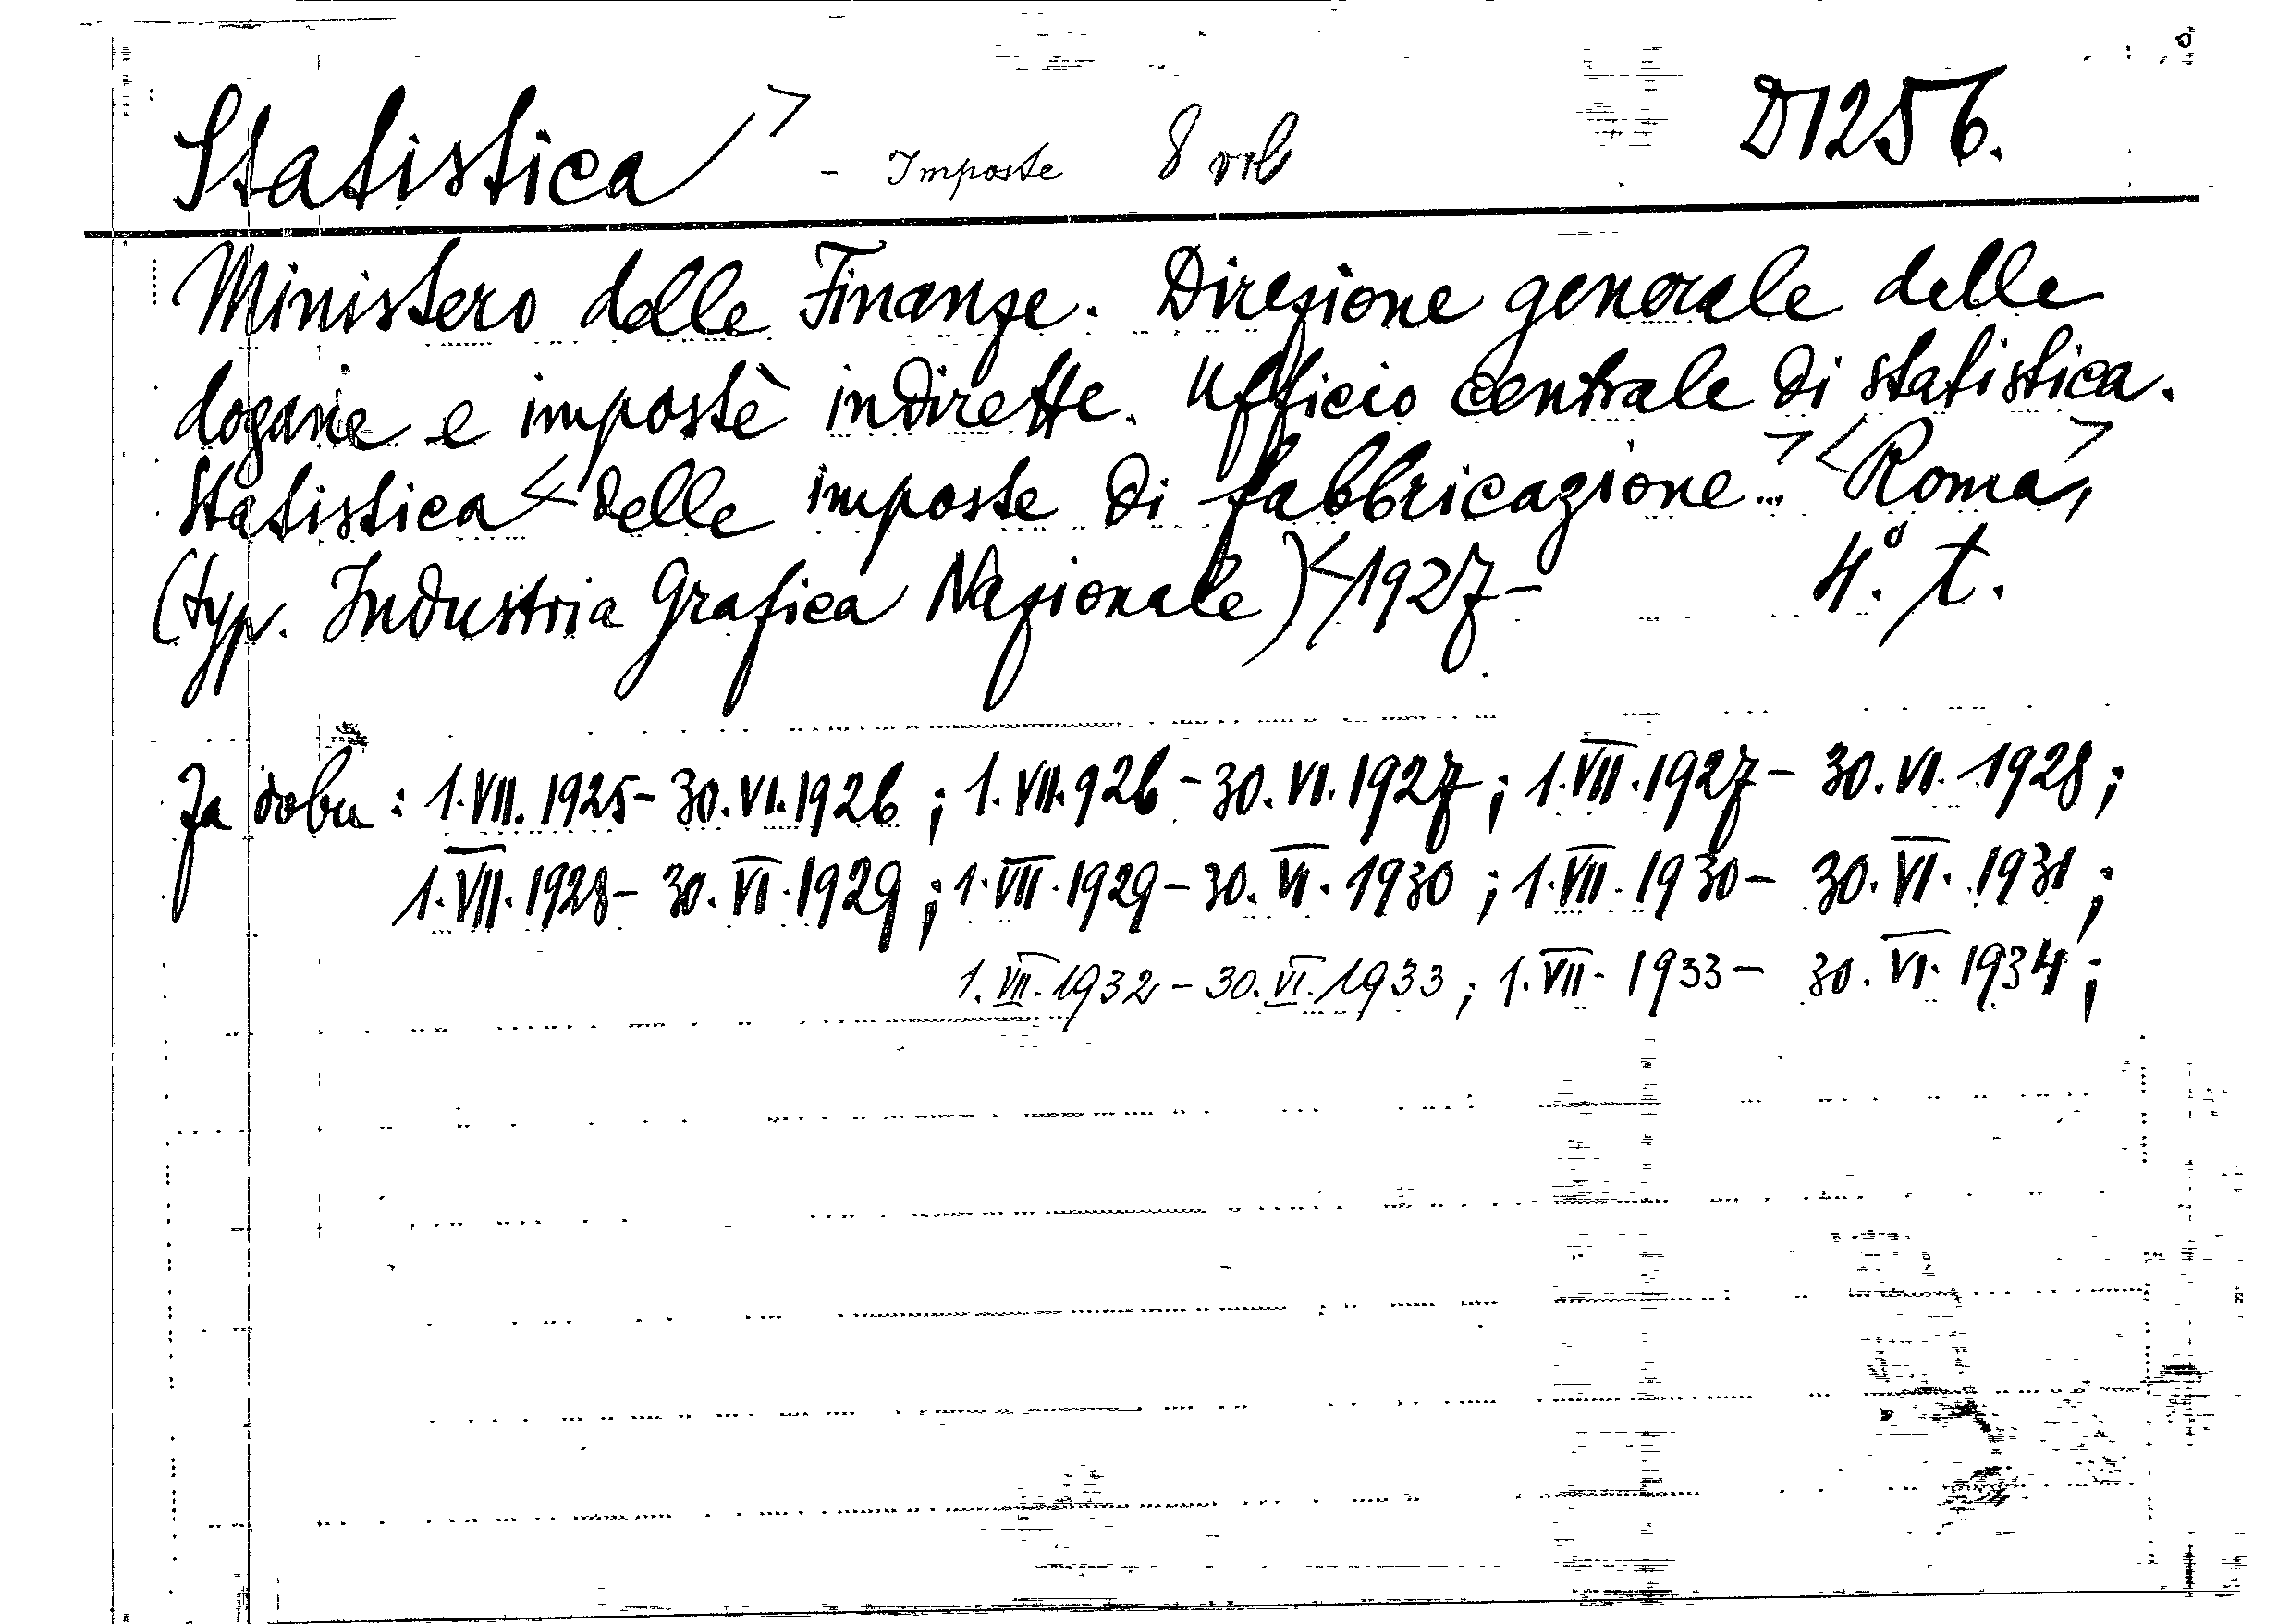 Statistica> - Imposte 8 vol D1256.
Ministero delle Finanze. Direzione generale delle
dogane e imposte indirette. Ufficio centrale di statistica.
Statistica < delle imposte di fabbricazione...> <Roma>,
(typ. Industria Grafica Nazionale) < 1927- 4° t.
Za dobu: 1.VII.1925-30.VI.1926; 1.VII.926-30.VI.1927; 1.VII.1927-30.VI.1928;
1.VII.1928-30.VI.1929; 1.VII.1929-30.VI.1930; 1.VII.1930-30.VI.1931;
1.VII.1932-30.VI.1933; 1.VII.1933-30.VI.1934;